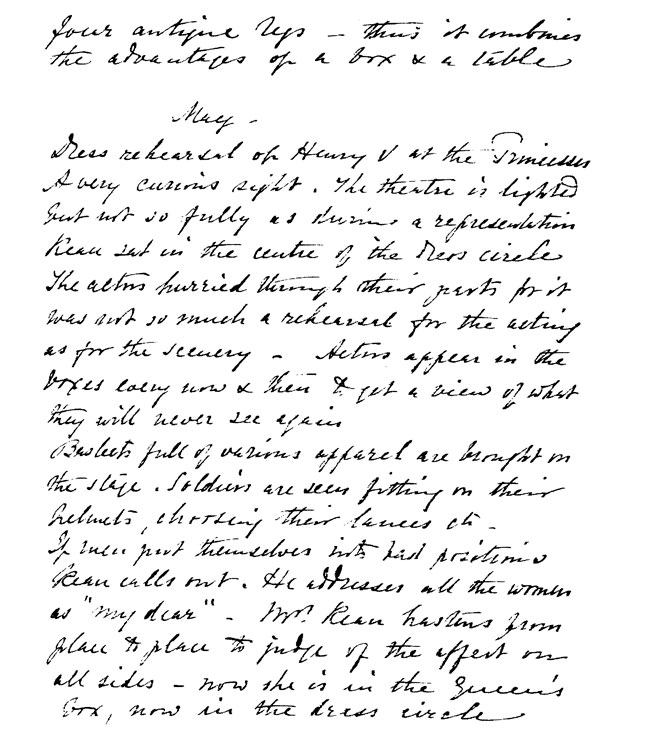 four antique legs – thus it combines
the advantages of a box & a table
May –
Dress rehearsal of Henry V at the Princesses
A very curious sight. The theatre is lighted
but not so fully as during a representation
Kean sat in the centre of the dress circle
The actors hurried through their parts for it
was not so much a rehearsal for the acting
as for the scenery – Actors appear in the
boxes every now & then to get a view of what
they will never see again
Baskets full of various apparel are brought on
the stage. Soldiers are seen fitting on their
helmets, choosing their lances etc –
If men put themselves into bad positions
Kean calls out. He addresses all the women
as "my dear" – Mrs. Kean hastens from
place to place to judge of the effect on
all sides – now she is in the Queen's
box, now in the dress circle